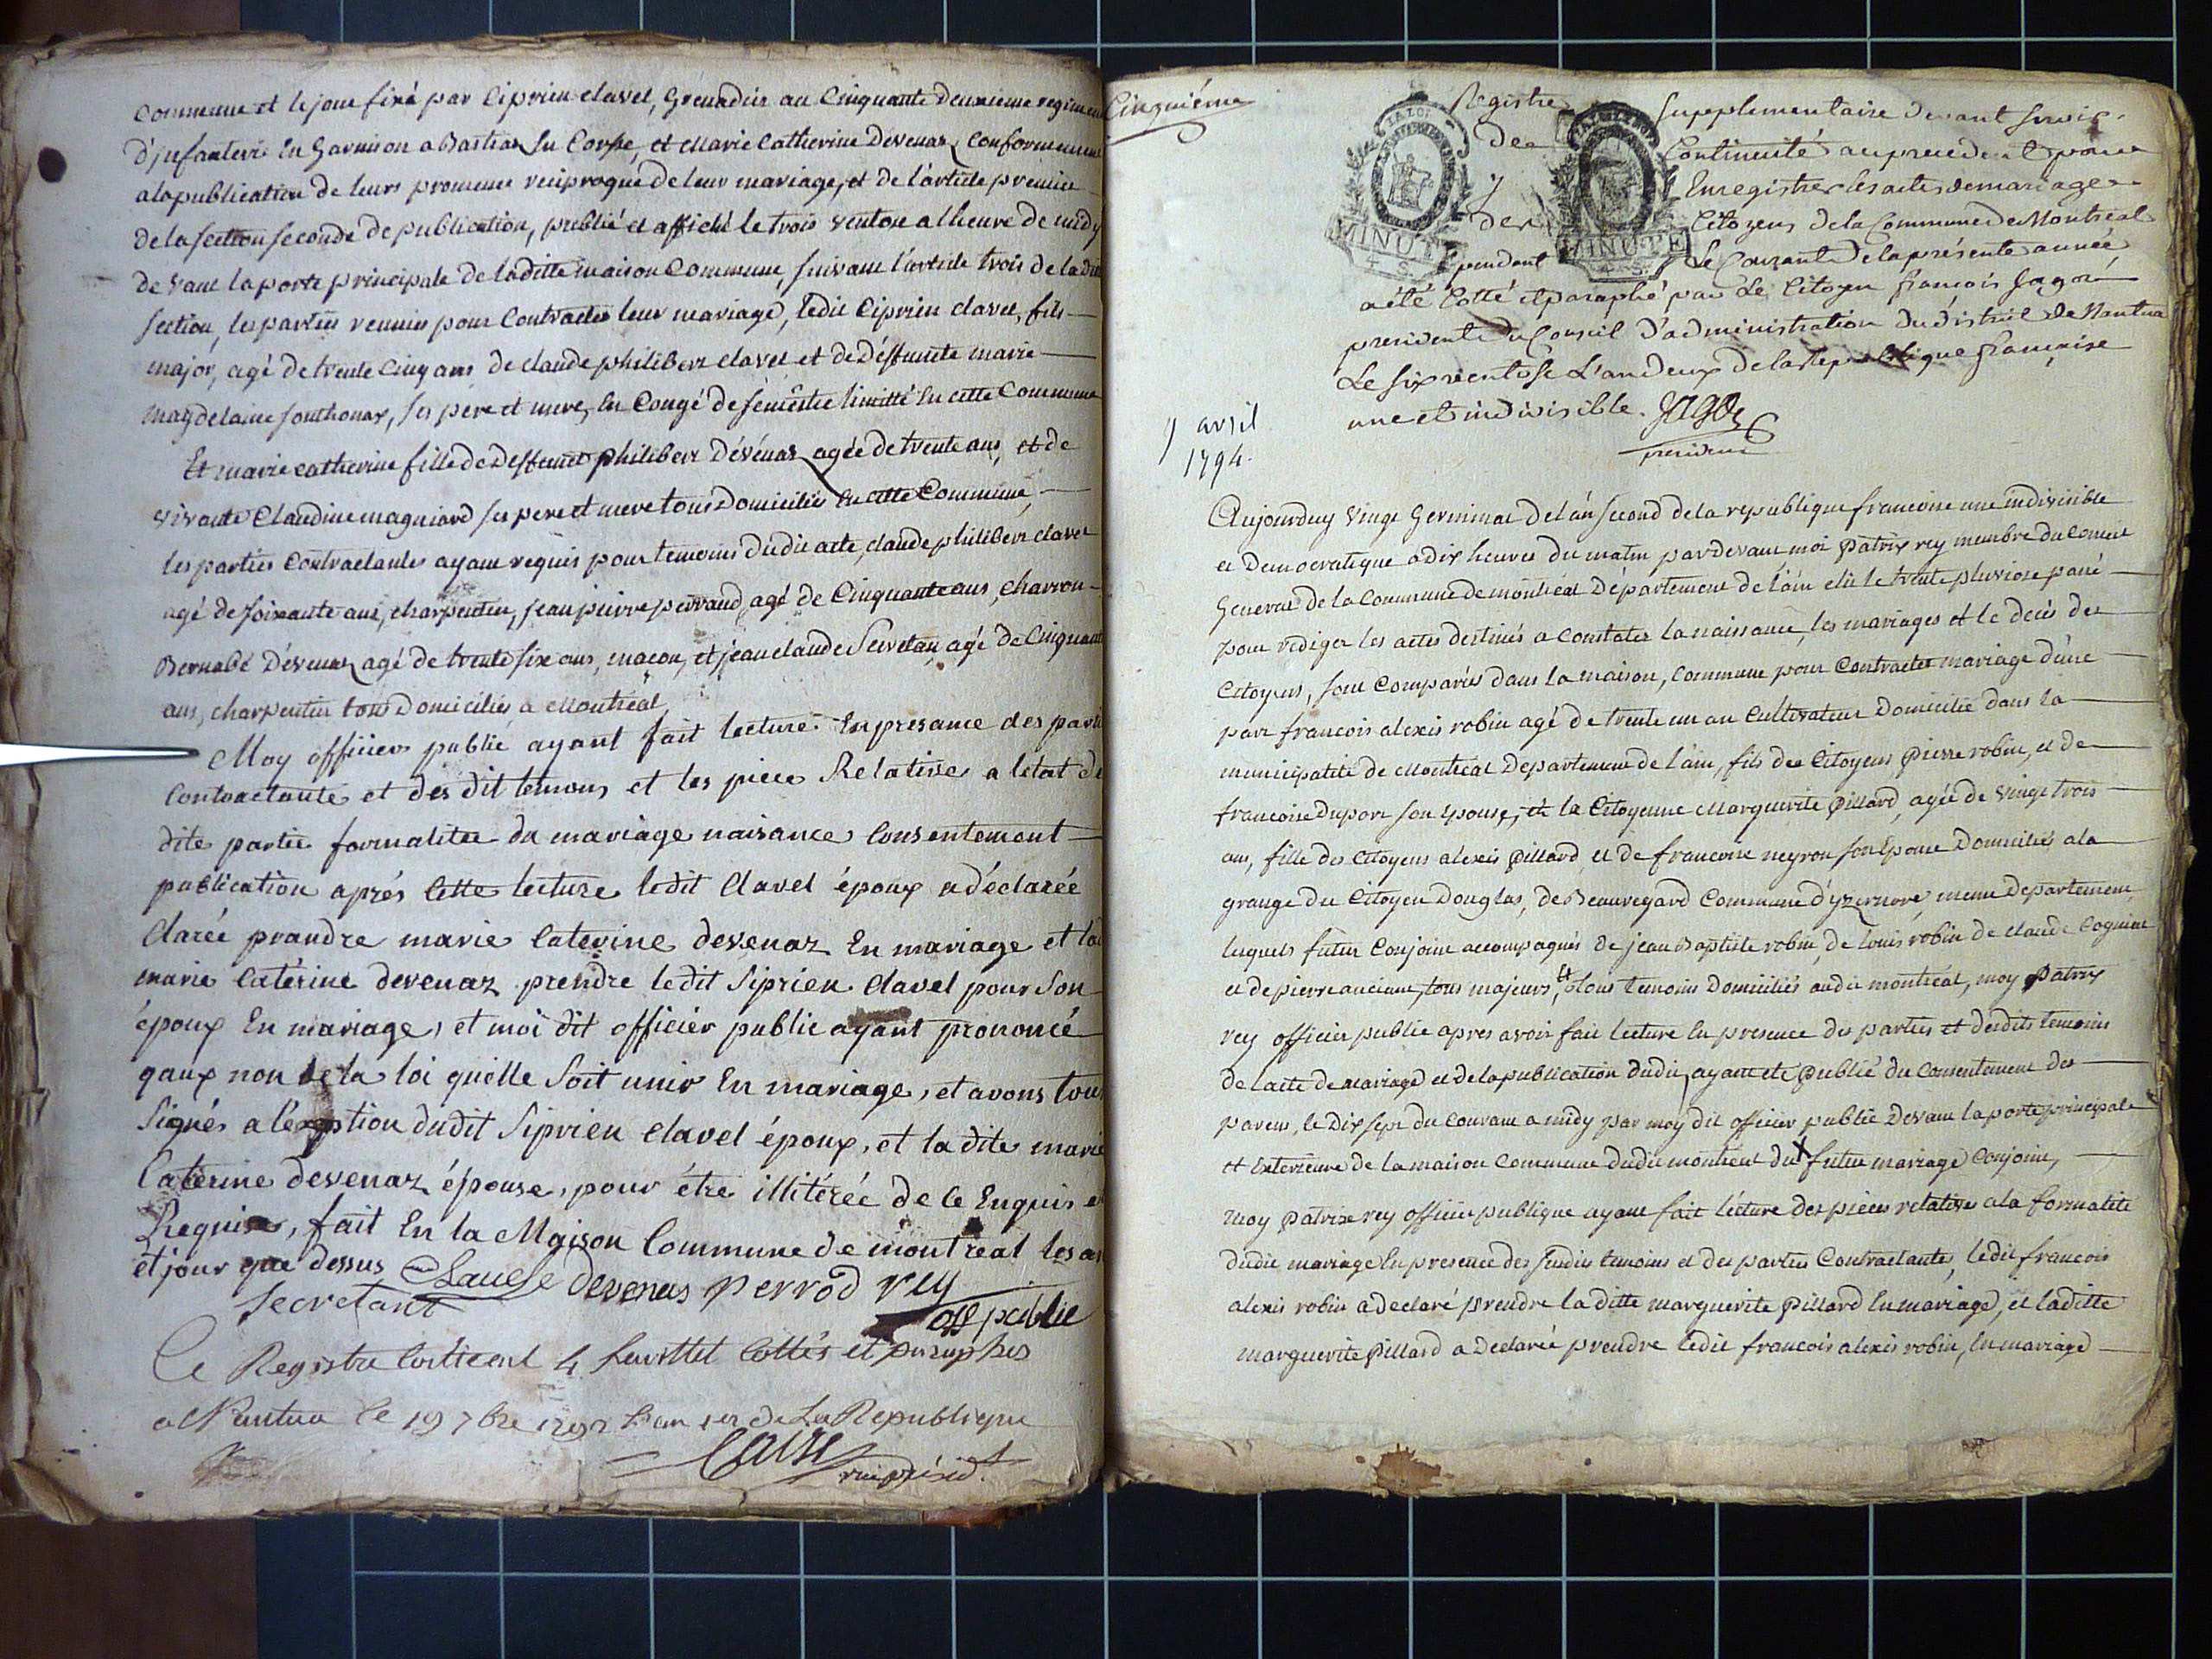 Commune et le jour fixé par Ciprien clavel, Grenadier au Cinquante deuxieme regimen
d'jnfanterie En Garnison a Bastia En Corse, et Marie Catherine Devenaz, Conformement
a la publication de leurs promesse reciproque de leur mariage, et de l'article premier
de la section seconde de publication, publié et affiché le trois ventose a lheure de midy
de vant la porte principale de laditte maison Commune, suivant l'article trois de la dit
section, les parties reunies pour Contracter leur mariage, ledit Ciprien clavel, fils
major, agé de trente Cinq ans de claude philibert clavel et de deffunte marie
magdelaine Southonax, ses pere et mere, En Congé de sémestre limitté En cette Commune
Et marie catherine fille de Deffunct philibert Dévénaz agée de trente ans, et de
vivante Claudine magniard ses pere et mere tous Domiciliés En cette Commune,
les parties Contractantes ayant requis pour temoins dudit acte, claude philibert clavel
agé de soixante ans, charpentier, jean pierre perraud, agé de Cinquante ans, charron
Bernabé Dévenaz agé de trente six ans, macon, et jean claude Secretan, agé de Cinquant
ans, charpentier tous Domiciliés a Montreal,
Moy officier public ayant fait lecture En presance des parti
Contractante et des dit temoins et les piece Relative a letat de
dite partie formalitee du mariage naisance Consentement
publication aprés Cette lecture ledit Clavel époux a déclarée
Clarée prandre marie Caterine devenaz En mariage et lad
marie Catérine devenaz prendre ledit Siprien Clavel pour Son
époux En mariage, et moi dit officier public ayant prononcé
qaux non de la loi quélle Soit unir En mariage, et avons tous
Signés a léxeption dudit Siprien Clavel époux, et la dite marie
Caterine devenaz épouse, pour étre illitérée de ce Enquis et
Requise, fait En la Maison Commune de montreal les an
et jour que dessus Devenas perrod rey
Secretant off public
Ce Registre Contient 4 feuillet Cottés et paraphes
a Nantua le 19 7bre 1792 L'an 1er de La Republique
vice présid.t
Cinquiéme
Registre Supplementaire devant servir
de Continuité au precedent pour
y Enregistrer les actes de mariage
des Citoyens de la Commune de Montréal
pendant Le Courant de la présente année,
a été Cotté et paraphé par Le Citoyen françois Jagot
president du Conseil d'administration du district de Nantua
Le six ventose L'an deux de la Republique française
une et indivisible. Jagot
president
LA LOI
MINUTE
4 S.
MINUTE
4 S.
9 avril
1794.
Aujourduy vingt Germinal de l'an second de la republique francoise une indivisible
et Democratique a dix heures du matin pardevant moi Patrix rey membre du Conseil
General de la Commune de montréal Département de l'ain elû le trente pluviose passé
pour rediger les actes destinés a Constater la naissance, les mariages et le decès des
Citoyens, sont Comparûs dans la maison, Commune pour Contracter mariage d'une
part francois alexis robin agé de trente un an Cultivateur Domicilié dans la
municipalité de Montréal Departement de l'ain, fils des Citoyens pierre robin, et de
francoise Duport son épouse, et la Citoyenne Marguerite Pillard, agée de vingt trois
ans, fille des Citoyens alexis Pillard et de francoise neyron son Epouse Domiciliés a la
grange du Citoyen Douglas, de Beauregard Commune d'yzernore, meme departement,
lesquels futur Conjoint accompagnés de jean Baptiste robin, de louis robin de claude Cogniat
et de pierre anciant, tous majeurs, Et tous temoins Domiciliés audit montréal, moy Patrix
rey officier public apres avoir fait lecture En presence des parties et desdits temoins
de l'acte de mariage et de la publication dudit, ayant eté publié du Consentement des
parens, le Dix sept du Courant a midy par moy dit officier public Devant la porte principale
et Exterieure de la maison Commune dudit montréal du futur mariage Conjoint,
moy Patrix rey officier publique ayant fait lécture des pieces relatives a la formalité
dudit mariage En presence des susdits temoins et des parties Contractantes, ledit francois
alexis robin a declaré prendre la ditte marguerite Pillard En mariage, et laditte
marguerite Pillard a declarée prendre ledit francois alexis robin, En mariage